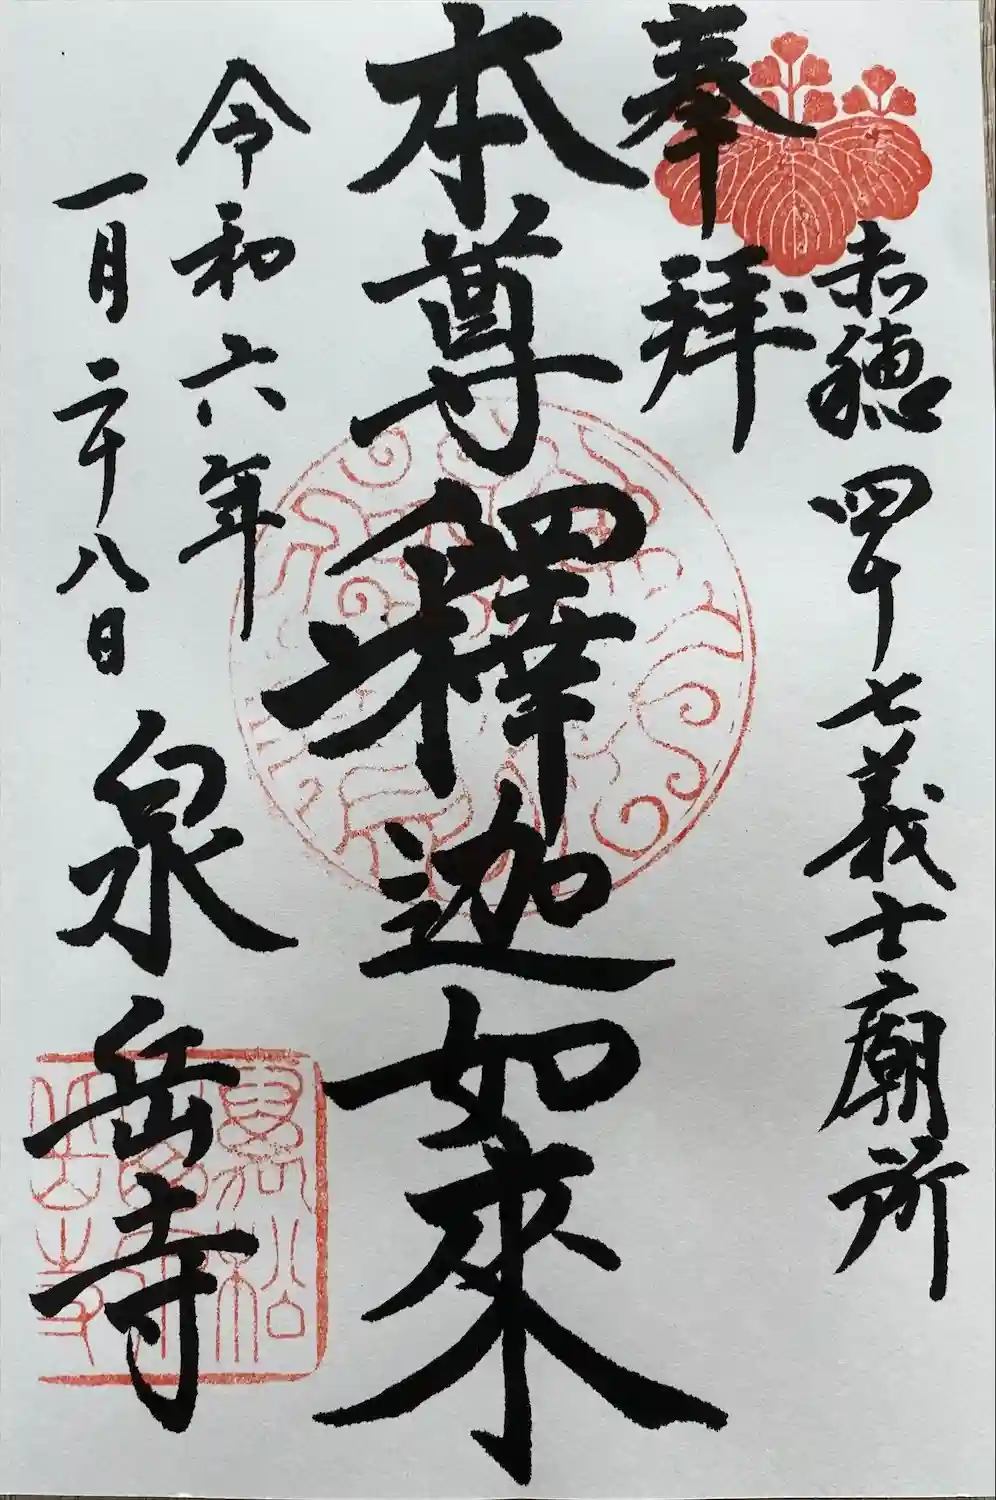 赤穂四十七義士廟所
奉拝
本尊釋迦如来
令和六年
一月二十八日
泉岳寺